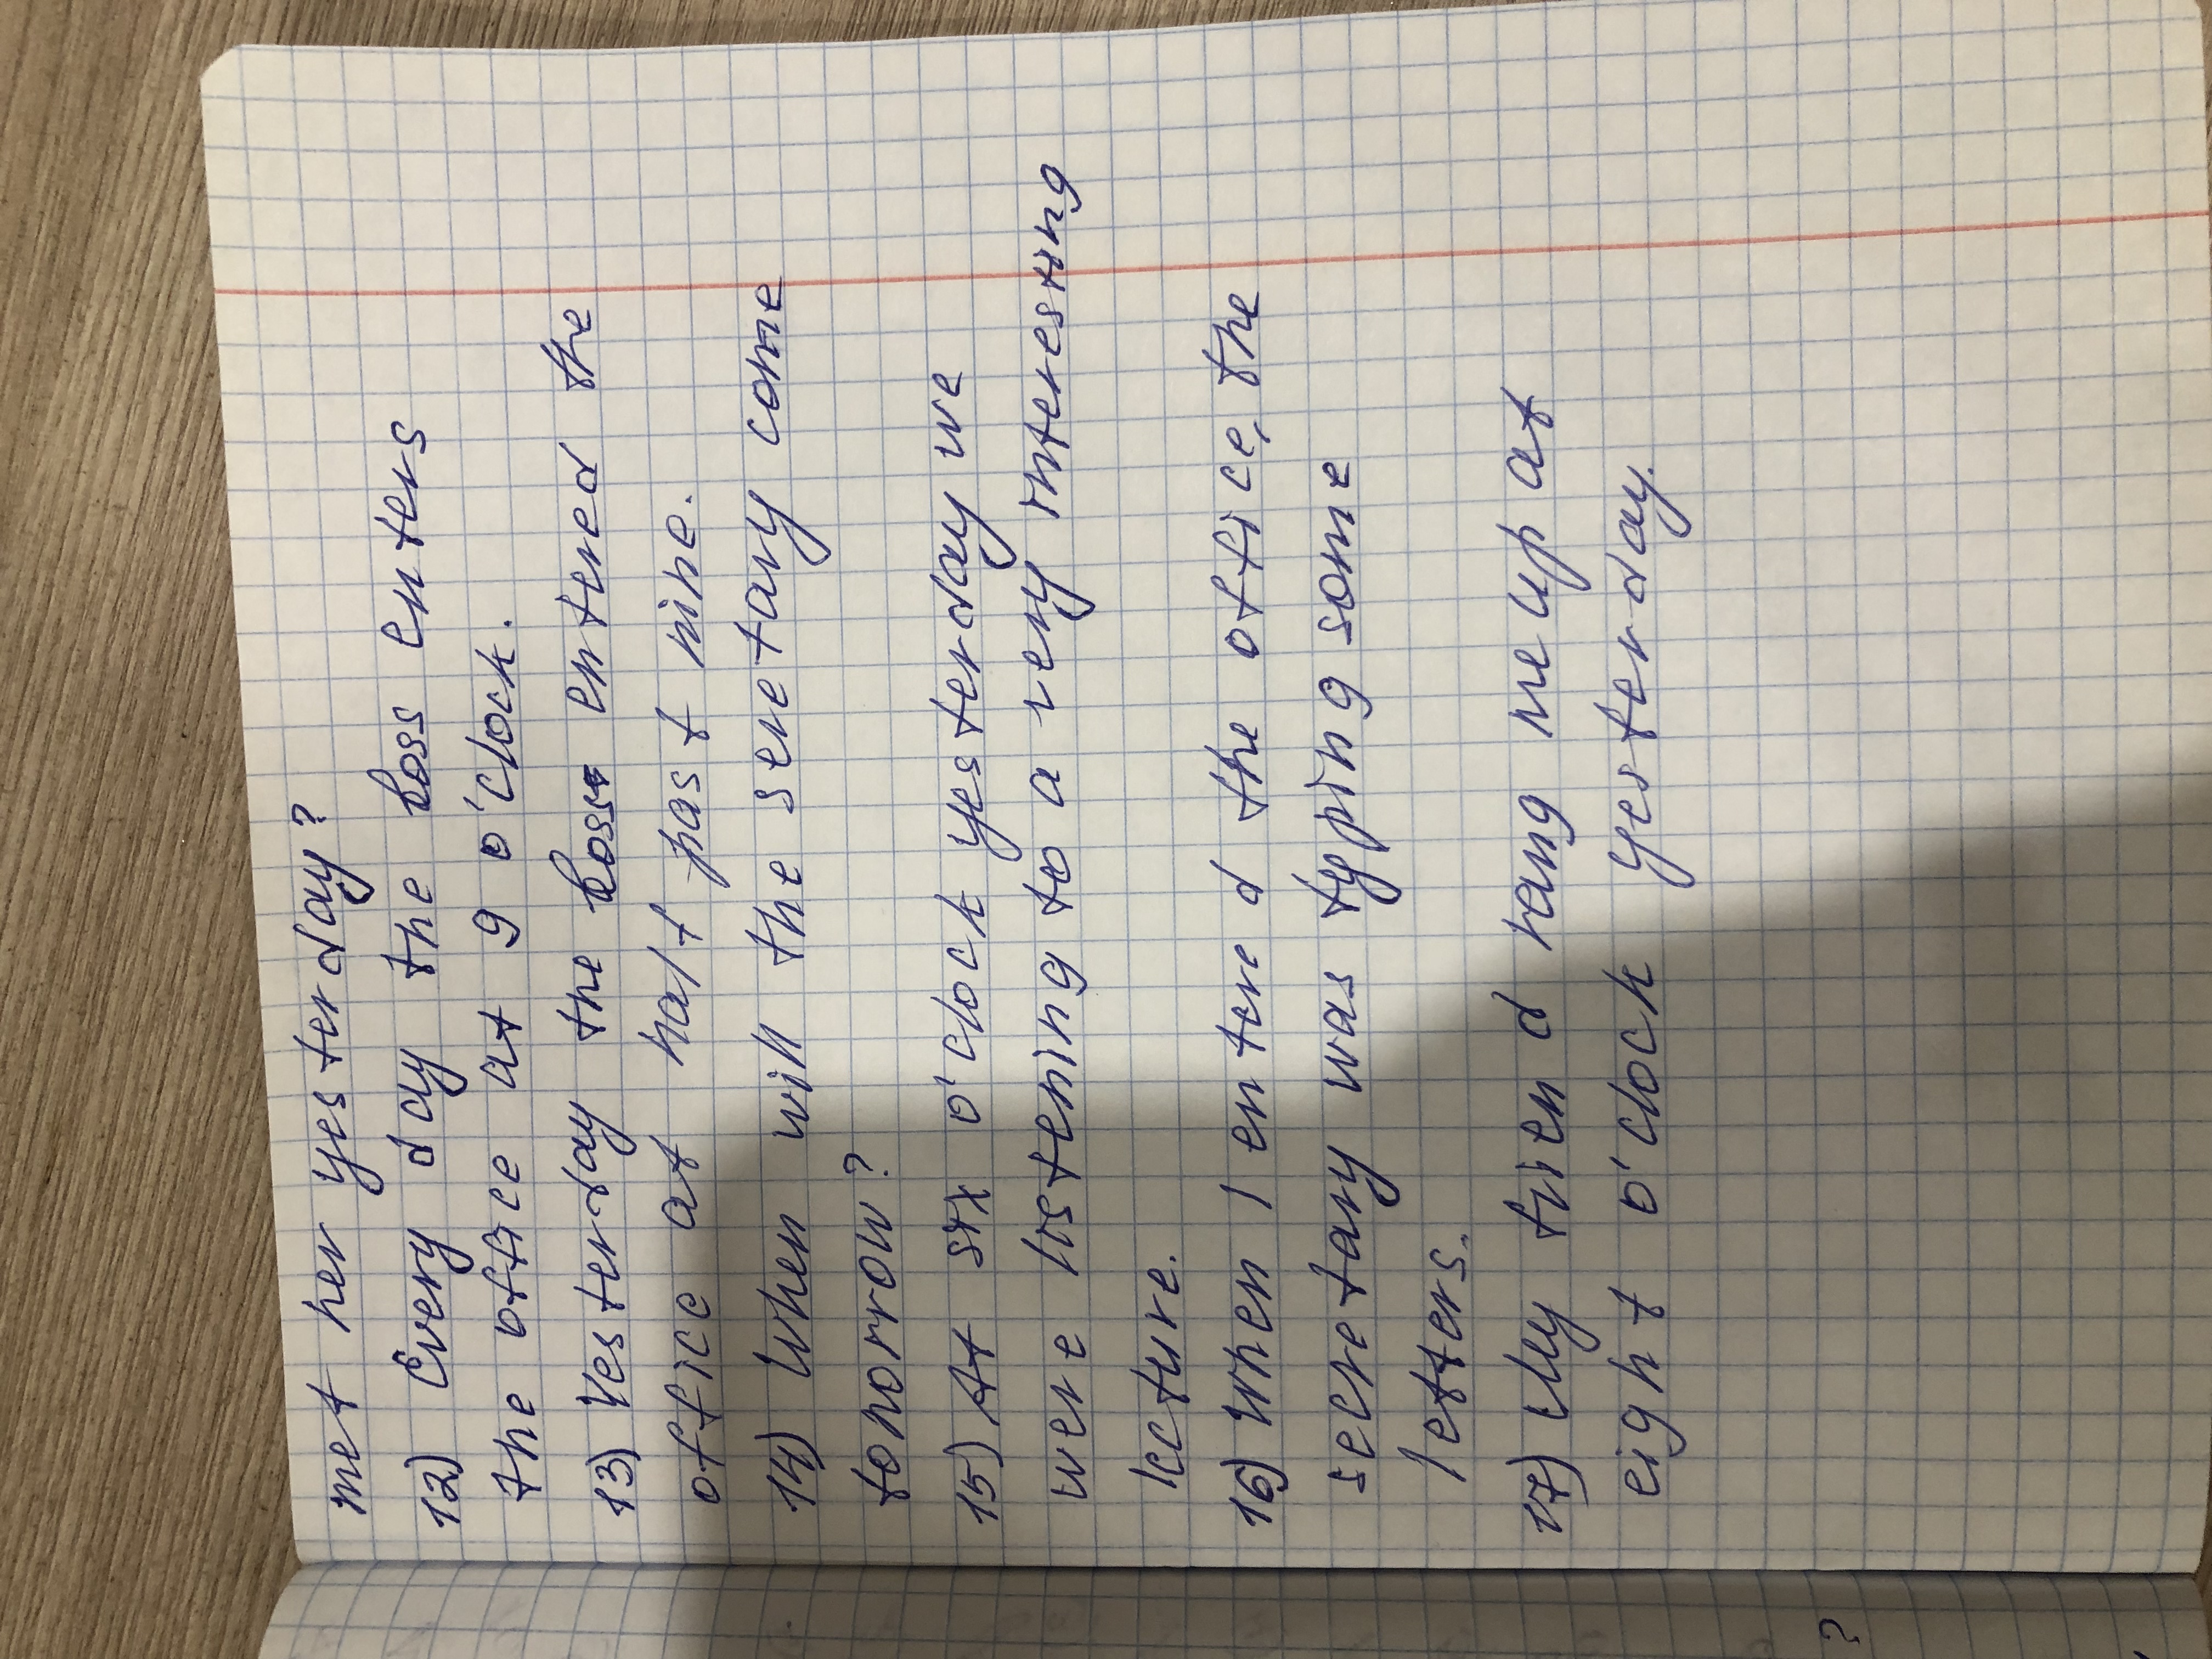 met her yesterday?
12) Every day the boss enters
the office at 9 o'clock.
13) Yesterday the boss entered the
office at half past nine.
14) When will the seretary come
tomorrow?
15) At six o'clock yesterday we
were listening to a very interesting
lecture.
16) When I entered the office, the
secretary was typing some
letters.
17) My friend rang me up at
eight o'clock yesterday.
?